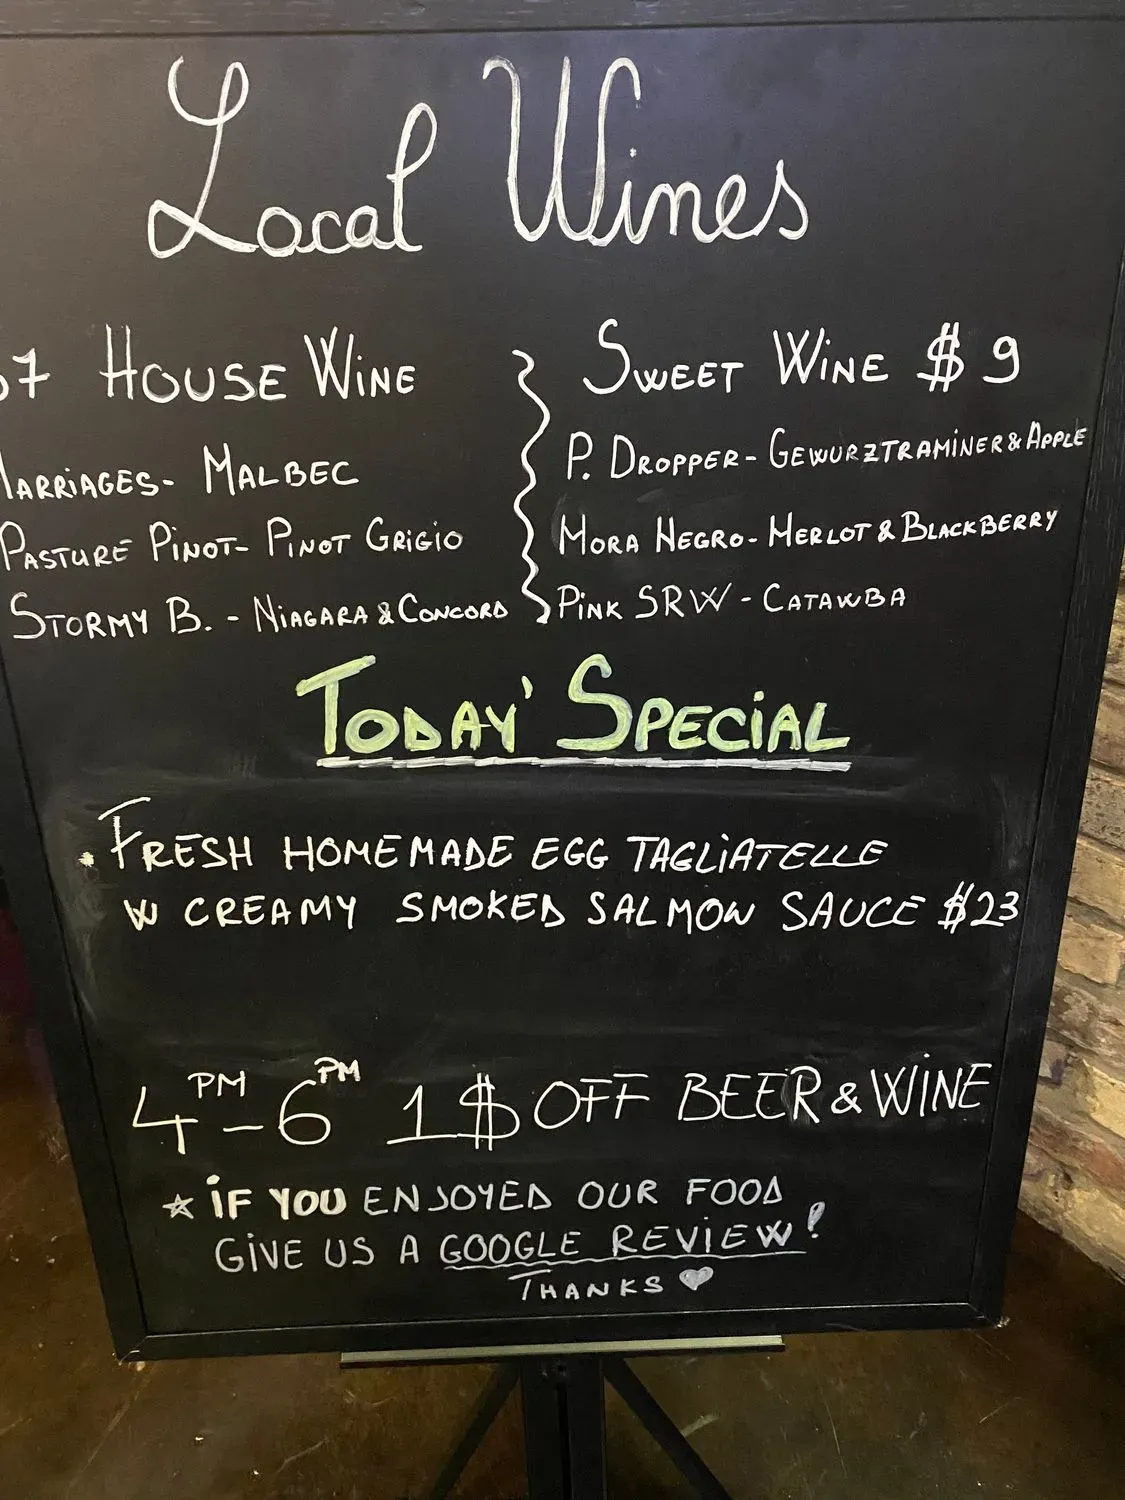 Local Wines
7 HOUSE WINE
MALBEC
PASTURE PINOT- PINOT GRIGIO
STORMY B. - NIAGARA & CONCORD
SWEET WINE $9
P. DROPPER- GEWURZTRAMINER & APPLE
MORA NEGRO- MERLOT & BLACKBERRY
PINK SRW - CATAWBA
TODAY' SPECIAL
. FRESH HOMEMADE EGG TAGLIATELLE
W CREAMY SMOKED SALMON SAUCE $23
4PM-6PM 1$ OFF BEER & WINE
☆ IF YOU ENJOYED OUR FOOD
GIVE US A GOOGLE REVIEW!
THANKS ♥